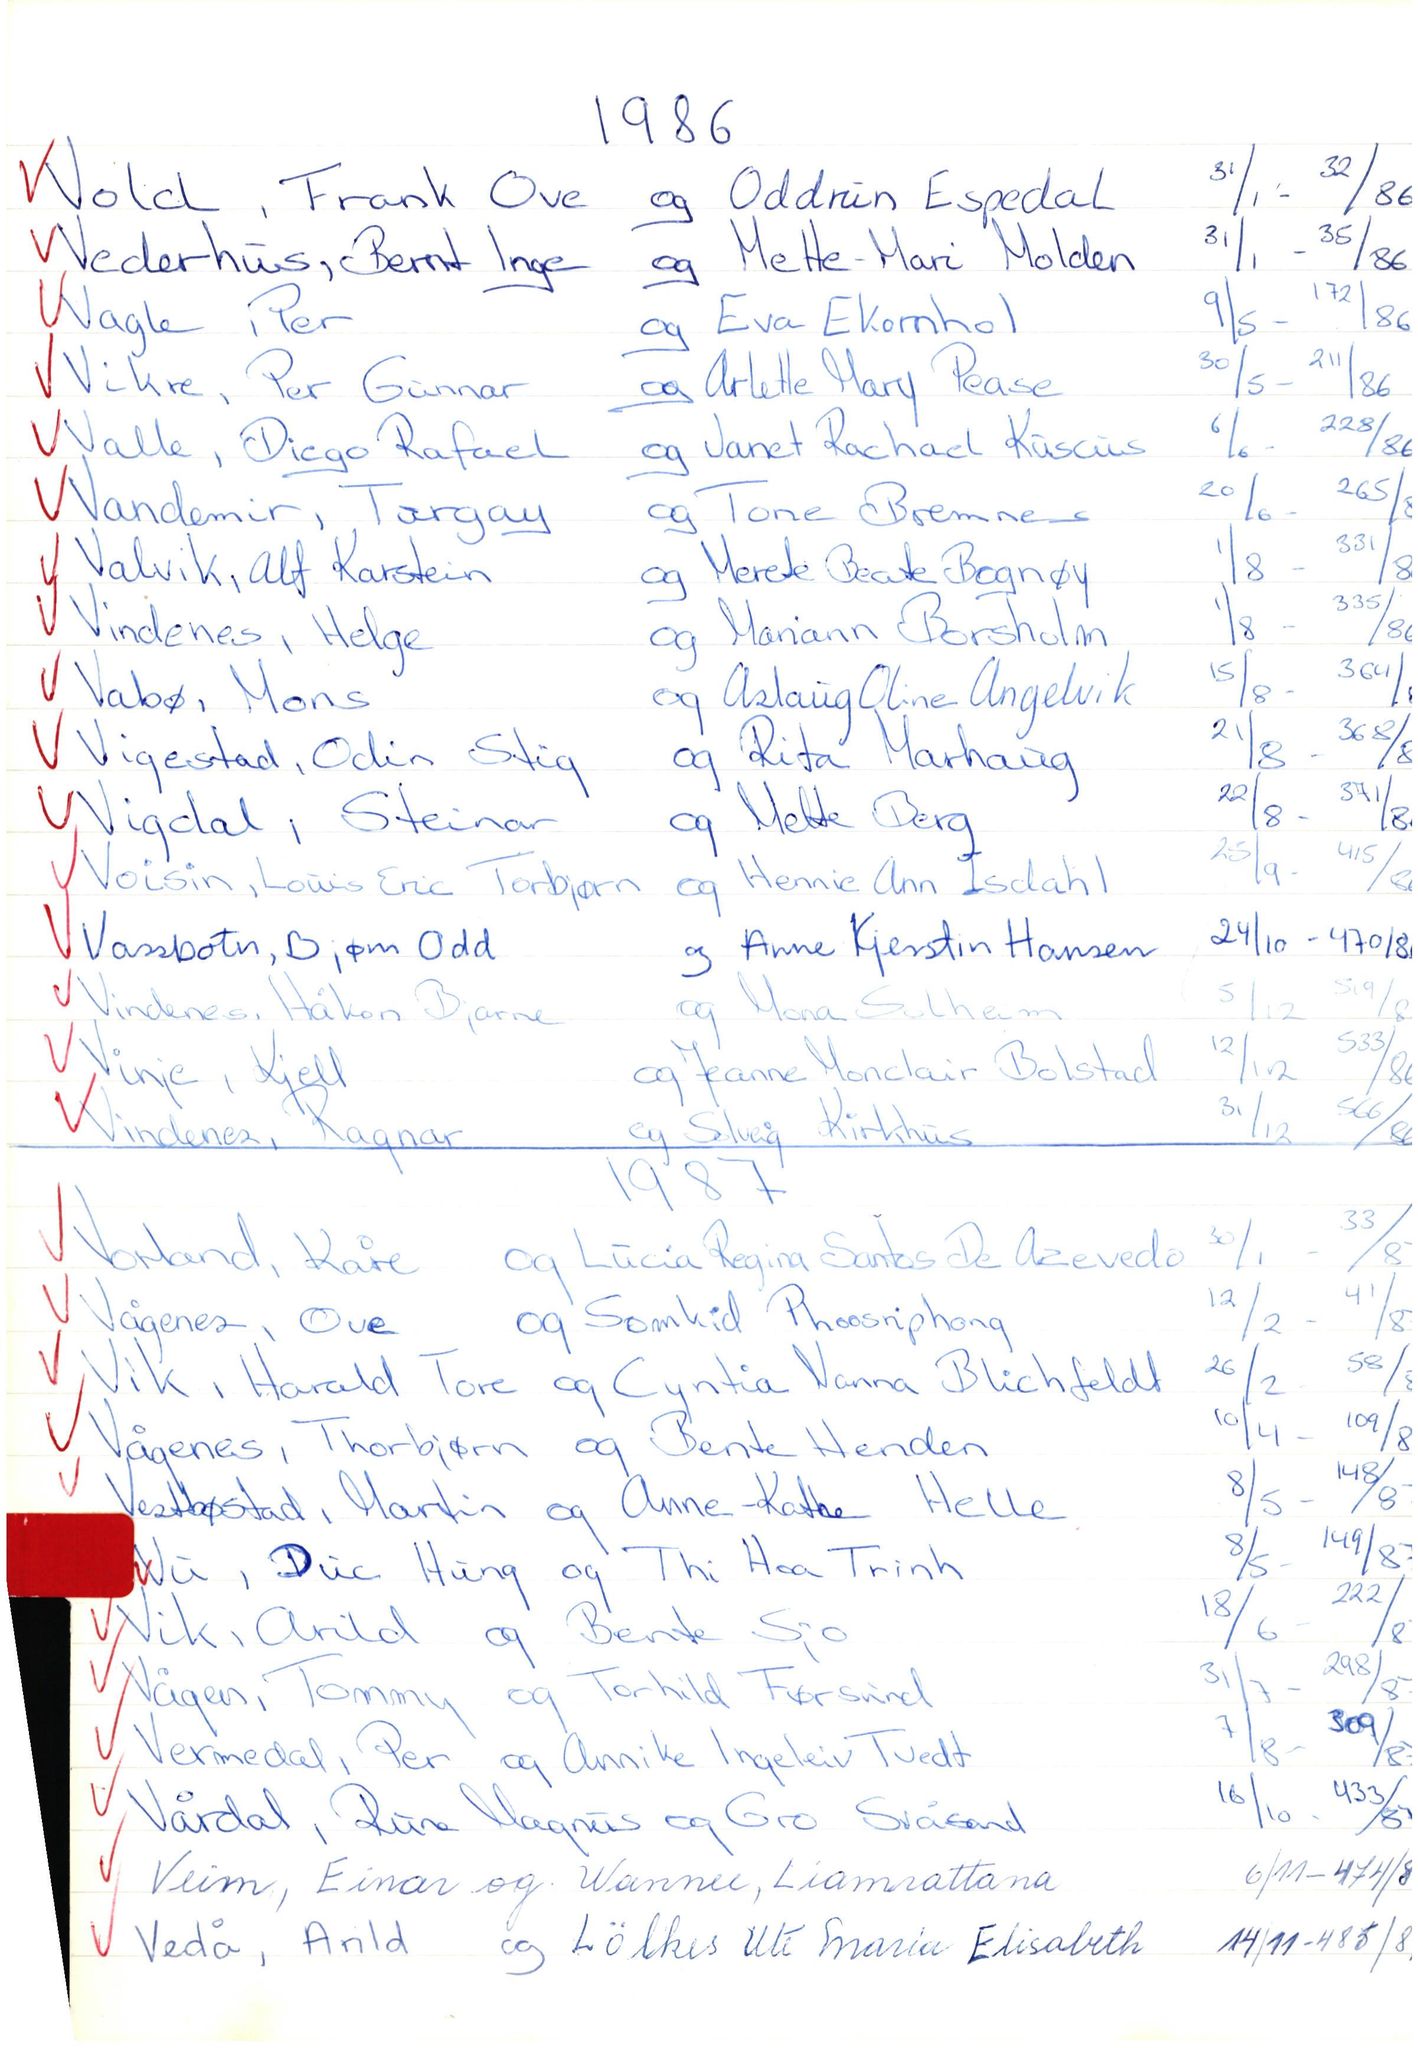 1986
Vold, Frank Ove og Oddrun Espedal 31/1 - 32/86
Vederhus, Bernt Inge og Mette-Mari Molden 31/1 - 35/86
Vagle, Per og Eva Ekornhol 9/5 - 172/86
Vikre, Per Gunnar og Arlette Mary Pease 30/5 - 211/86
Valle, Diego Rafael og Janet Rachael Kuscus 6/6 - 228/86
Vandemir, Targay og Tone Bremnes 20/6 - 265/8
Valvik, Alf Karstein og Merete Beate Bognøy 1/8 - 331/8
Vindenes, Helge og Mariann Borsholm 1/8 - 335/86
Vabø, Mons og Aslaug Oline Angelvik 15/8 - 364/8
Vigestad, Odin Stig og Rita Marhaug 21/8 - 368/8
Vigdal, Steinar og Mette Berg 22/8 - 371/8
Voisin, Louis Eric Torbjørn og Hennie Ann Isdahl 25/9 - 415/86
Vassbotn, Bjørn Odd og Anne Kjerstin Hansen 24/10 - 470/8
Vindenes, Håkon Bjarne og Mona Solheim 5/12 519/8
Vinje, Kjell og Jeanne Monclair Bolstad 12/12 533/86
Vindenes, Ragnar og Solveig Kirkhus 31/12 566/86
1987
Vorland, Kåre og Lucia Regina Santos De Azevedo 30/1 - 33/8
Vågenes, Ove og Somkid Phoosriphong 12/2 - 41/8
Vik, Harald Tore og Cyntia Nanna Blichfeldt 26/2 58/8
Vågenes, Thorbjørn og Bente Henden 10/4 - 109/8
Martin og Anne-Kathe Helle 8/5 - 148/8
Vu, Duc Hung og Thi Hoa Trinh 8/5 - 149/87
Vik, Arild og Bente Sjo 18/6 - 222/8
Vågen, Tommy og Torhild Førsund 31/7 - 298/8
Vermedal, Per og Annike Ingeleiv Tvedt 7/8 - 309/8
Vårdal, Rune Magnus og Gro Svåsand 16/10 - 433/8
Veim, Einar og Wannee, Liamrattana 6/11 - 474/8
Vedå, Arild og Lölkes Ute Maria Elisabeth 14/11 - 485/8